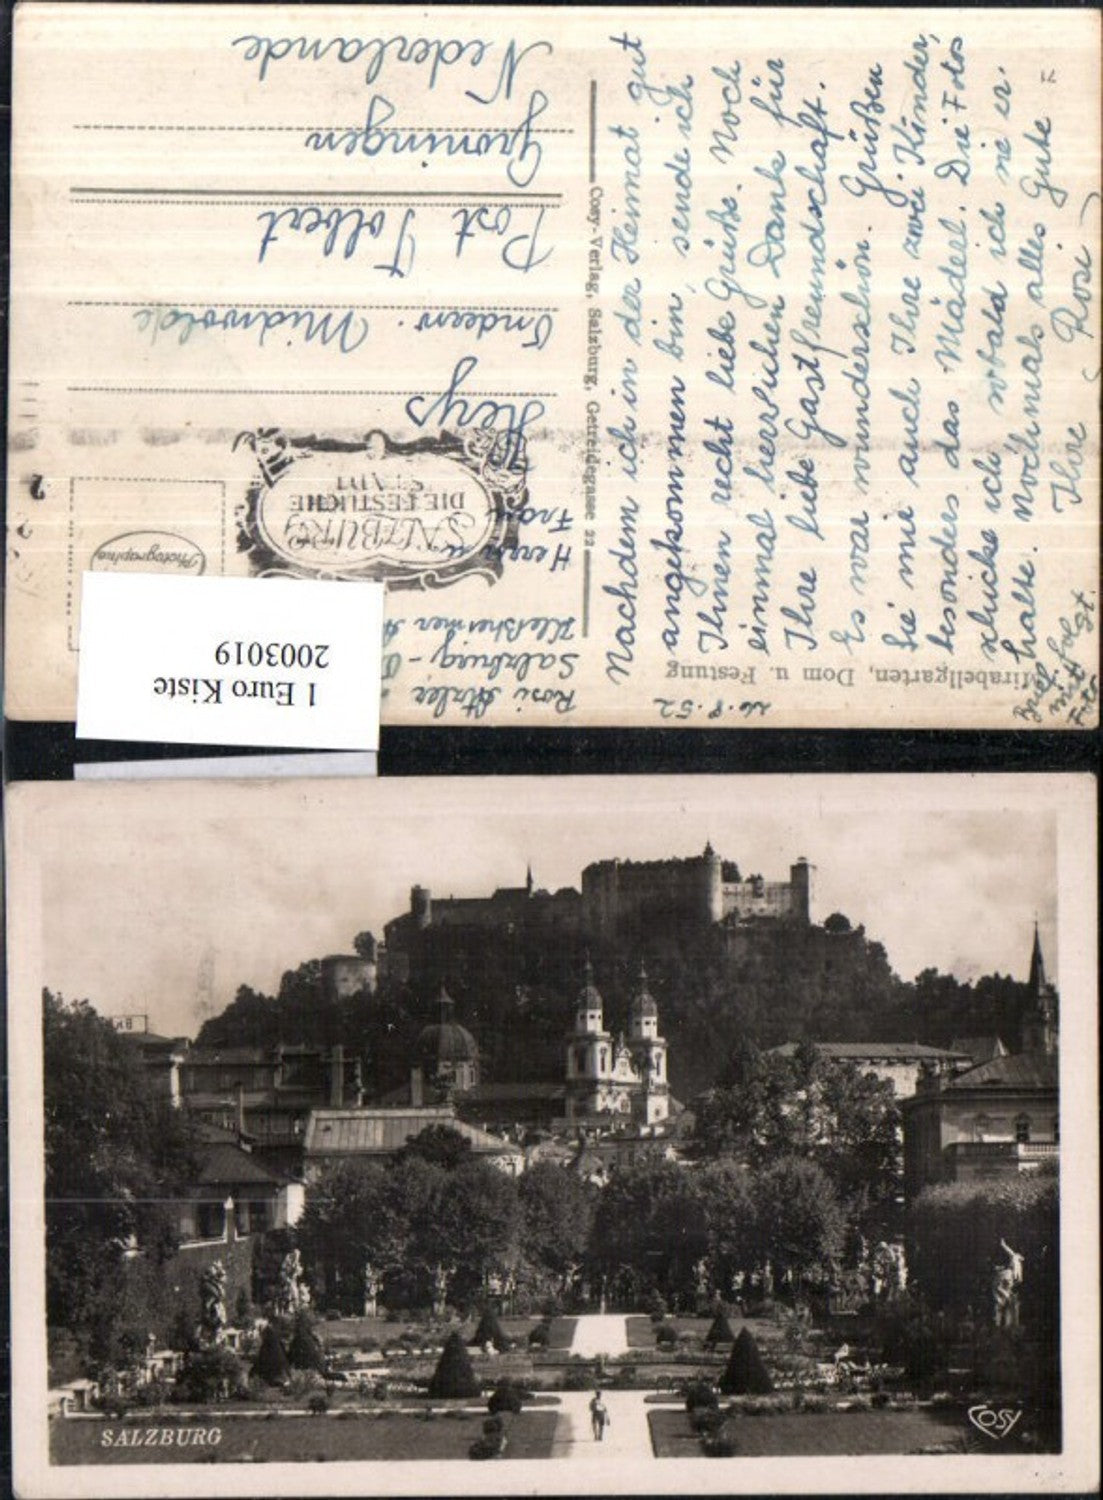 Mirabellgarten, Dom u. Festung
26.8.52
Nachdem ich in der Heimat gut
angekommen bin, sende ich
Ihnen recht liebe Grüße. Noch
einmal herzlichen Dank für
Ihre liebe Gastfreundschaft.
Es war wunderschön. Grüßen
Sie mir auch Ihre zwei Kinder,
besonders das Mäderl. Die Fotos
schicke ich sobald ich sie er-
halte. Nochmals alles Gute
Ihre Rosi
Brief
mit
Fotos
folgt
Cosy-Verlag, Salzburg, Getreidegasse 22
Rosi
Salzburg-
Herrn u.
Frau
Herys
Midwolde
Post Tolbert
Groningen
Nederlande
SALZBURG
DIE FESTLICHE
STADT
Photographie
2
1 Euro Kiste
2003019
SALZBURG
COSY